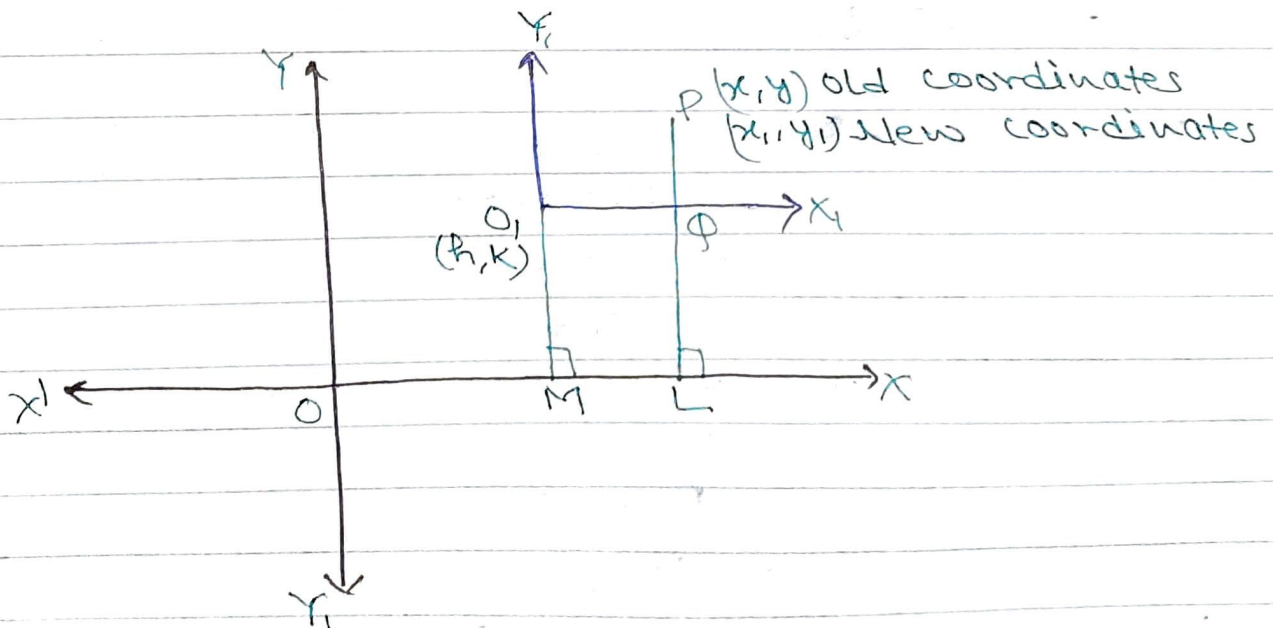 Y₁
Y
P (x,y) Old coordinates
(x₁,y₁) New coordinates
O₁
Q
X₁
(h,k)
X'
O
M
L
X
Y₁